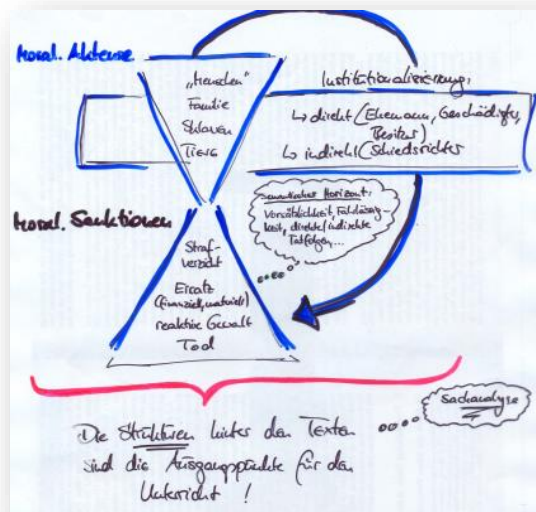 Moral. Akteure
„Menschen"
Familie
Sklaven
Tiere
Institutionalisierung:
↳ direkt (Ehemann, Geschädigter,
Besitzer)
↳ indirekt (Schiedsrichter
Moral. Sanktionen
semantischer Horizont:
Vorsätzlichkeit, Fahrlässig-
keit, direkte/indirekte
Tatfolgen...
Straf-
verzicht
Ersatz
(finanziell, materiell)
reaktive Gewalt
Tod
Sachanalyse
Die Strukturen hinter den Texten
sind die Ausgangspunkte für den
Unterricht!